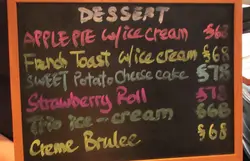 DESSERT
APPLE PIE w/ice cream $68
French Toast w/ice cream $68
SWEET Potato Cheese cake $78
Strawberry Roll $78
Trio ice-cream $68
Creme Brulee $68